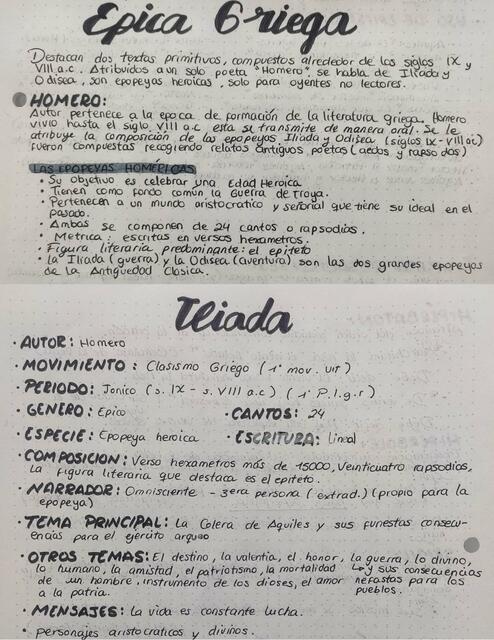 Epica Griega
Destacan dos textos primitivos, compuestos alrededor de los siglos IX y
VIII a.c. Atribuidos a un solo poeta "Homero", se habla de Iliada y
Odisea, son epopeyas heroicas, solo para oyentes no lectores.
HOMERO:
Autor pertenece a la epoca de formación de la literatura griega. Homero
vivio hasta el siglo VIII a.c esta se transmite de manera oral. Se le
atribuye la composición de las epopeyas Iliada y Odisea (siglos IX-VIII ac)
fueron compuestas recogiendo relatos antiguos poetas (aedos y rapsodas)
LAS EPOPEYAS HOMÉRICAS
• Su objetivo es celebrar una Edad Heroica
• Tienen como fondo común la Guerra de Troya.
• Pertenecen a un mundo aristocratico y señorial que tiene su ideal en el
pasado.
• Ambas se componen de 24 cantos o rapsodias.
• Metrica: escritas en versos hexametros.
• Figura literaria predominante: el epiteto
• la Iliada (guerra) y la Odisea (aventura) son las dos grandes epopeyas
de la Antigüedad Clasica.
Iliada
• AUTOR: Homero
• MOVIMIENTO: Clasismo Griego (1° mov. lit)
• PERIODO: Jonico (s. IX - s. VIII a.c) (1° P.l.g.r)
• GENERO: Epico • CANTOS: 24
• ESPECIE: Epopeya heroica • ESCRITURA: Lineal
• COMPOSICION: Verso hexametros más de 15000, Veinticuatro rapsodias,
La figura literaria que destaca es el epiteto.
• NARRADOR: Omnisciente - 3era persona (extrad.) (propio para la
epopeya)
• TEMA PRINCIPAL: La Colera de Aquiles y sus funestas consecu-
encias para el ejercito argueo
• OTROS TEMAS: El destino, la valentia, el honor, la guerra, lo divino,
lo humano, la amistad, el patriotismo, la mortalidad ↳ y sus consecuencias
de un hombre, instrumento de los dioses, el amor nefastas para los
a la patria. pueblos.
• MENSAJES: la vida es constante lucha.
• personajes aristocraticos y divinos.